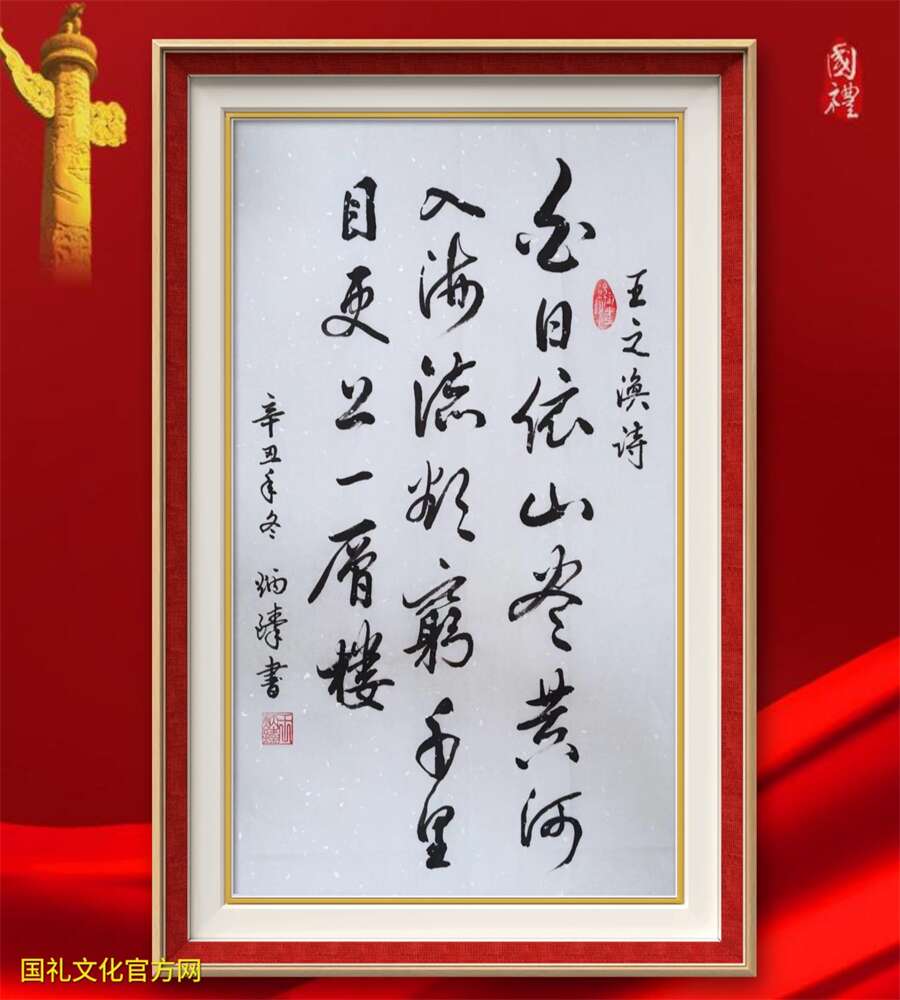 國禮
王之渙詩
白日依山尽黄河
入海流欲窮千里
目更上一層楼
辛丑年冬
炳璋書
国礼文化官方网